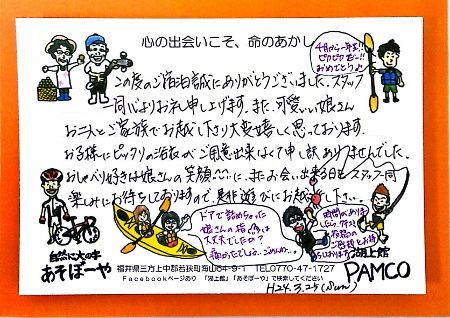 心の出会いこそ、命のあかし
4月から一年生!!
ピカピカだー!!
おめでとう♪
この度のご宿泊誠にありがとうございました。スタッフ
一同心よりお礼申し上げます。また、可愛い娘さん
お二人とご家族でお越し下さり大変嬉しく思っております。
お子様にピッタリの浴衣がご用意出来なくて申し訳ありませんでした。
おしゃべり好きな娘さんの笑顔に、またお会い出来る日をスタッフ一同
楽しみにお待ちしておりますので、是非遊びにお越し下さい。
ドアで詰めちゃった
娘さんの指は
大丈夫でしたか?
痛かったでしょう…ごめんね…。
時間がありま
したら
自然に大の字
あそぼーや
湖上館
PAMCO
福井県三方上中郡若狭町海山64-9-1 TEL0770-47-1727
Facebookページあり 「湖上館」「あそぼーや」で検索してください
H24.3.25(Sun)